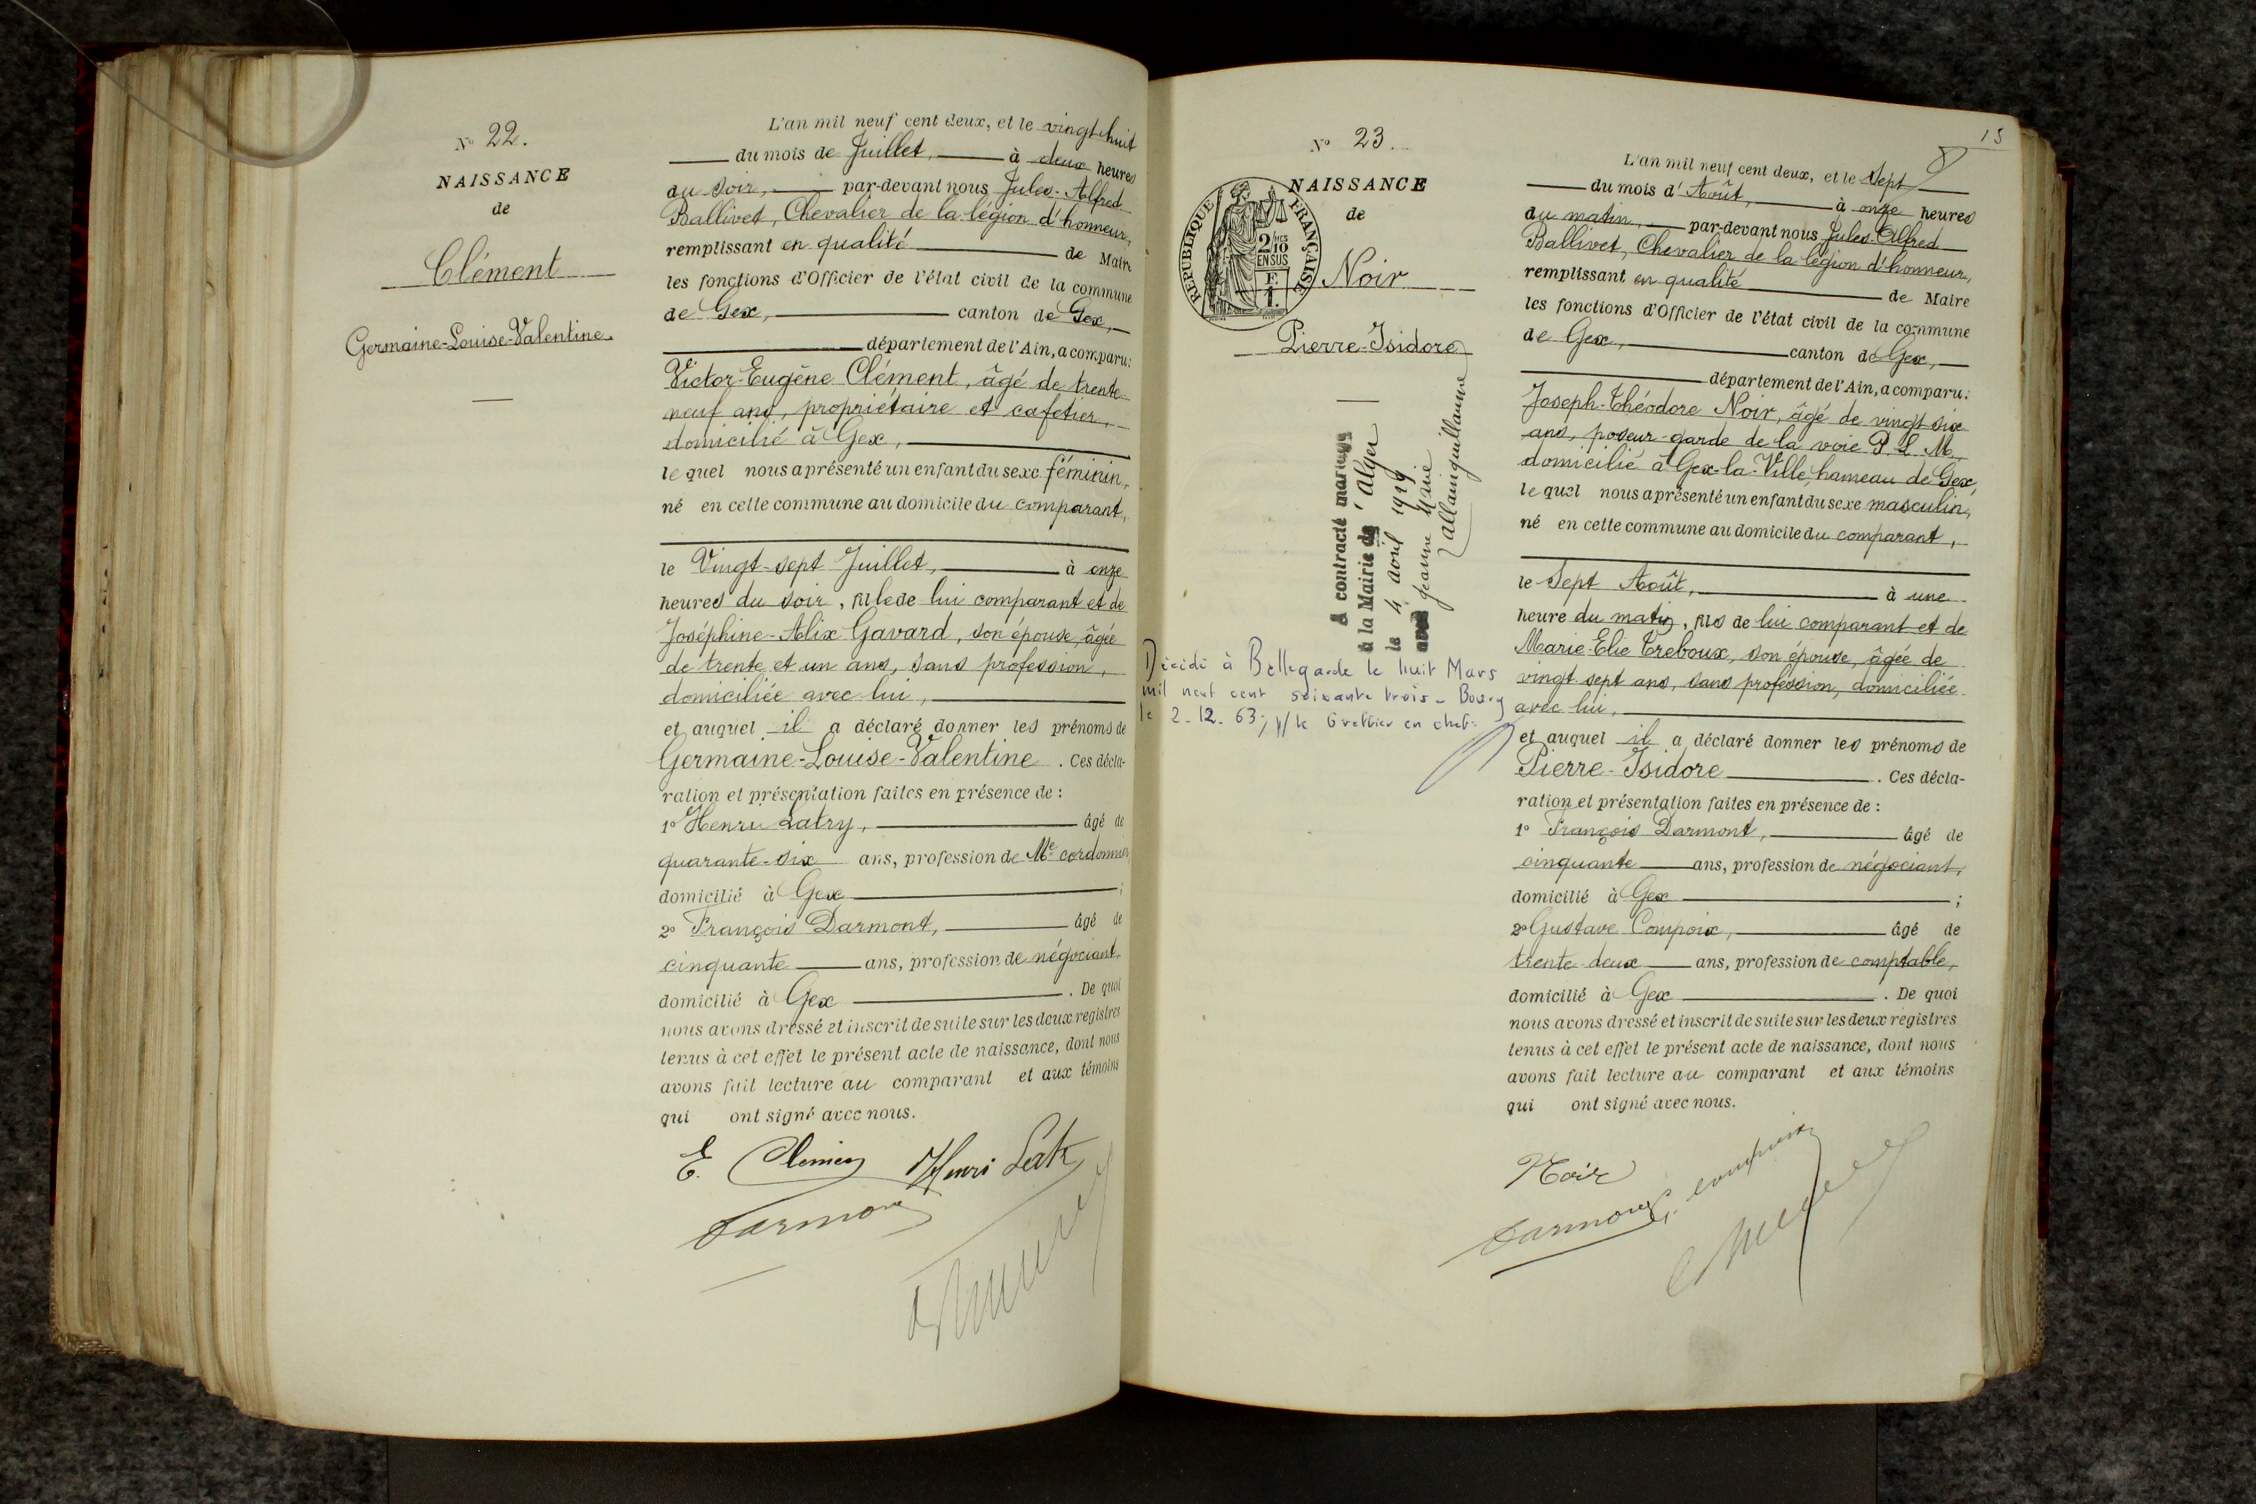 N° 22.
NAISSANCE
de
Clément
Germaine-Louise-Valentine.
L'an mil neuf cent deux, et le vingt-huit
du mois de Juillet, à deux heures
du soir, par-devant nous Jules-Alfred
Ballivet, Chevalier de la légion d'honneur,
remplissant en qualité de Maire
les fonctions d'Officier de l'état civil de la commune
de Gex, canton de Gex,
département de l'Ain, a comparu:
Victor-Eugène Clément, âgé de trente-
neuf ans, propriétaire et cafetier,
domicilié à Gex,
lequel nous a présenté un enfant du sexe féminin,
né en cette commune au domicile du comparant,
le Vingt-sept Juillet, à onze
heures du soir, fille de lui comparant et de
Joséphine-Alix Gavard, son épouse, âgée
de trente et un ans, sans profession,
domiciliée avec lui,
et auquel il a déclaré donner les prénoms de
Germaine-Louise-Valentine. Ces décla-
ration et présentation faites en présence de :
1° Henri Latry, âgé de
quarante-six ans, profession de Me cordonnier
domicilié à Gex ;
2° François Darmont, âgé de
cinquante ans, profession de négociant,
domicilié à Gex. De quoi
nous avons dressé et inscrit de suite sur les deux registres
tenus à cet effet le présent acte de naissance, dont nous
avons fait lecture au comparant et aux témoins
qui ont signé avec nous.
E. Clément Henri
Darmont
15
N° 23.
NAISSANCE
de
RÉPUBLIQUE FRANÇAISE
2/10 EN SUS
F.
1.
Noir
Pierre-Isidore
A contracté mariage
à la Mairie d'Alger
le 4 avril 1929
avec Jeanne Marie
Lallauquillaume
Décédé à Bellegarde le huit Mars
mil neuf cent soixante trois - Bourg
le 2-12-63; p/le Greffier en chef:
L'an mil neuf cent deux, et le Sept
du mois d'Août, à onze heures
du matin, par-devant nous Jules-Alfred
Ballivet, Chevalier de la légion d'honneur,
remplissant en qualité de Maire
les fonctions d'Officier de l'état civil de la commune
de Gex, canton de Gex,
département de l'Ain, a comparu:
Joseph-Théodore Noir, âgé de vingt-six
ans, poseur-garde de la voie P.L.M.,
domicilié à Gex-la-Ville, hameau de Gex,
lequel nous a présenté un enfant du sexe masculin,
né en cette commune au domicile du comparant,
le Sept Août, à une
heure du matin, fils de lui comparant et de
Marie-Elie Treboux, son épouse, âgée de
vingt sept ans, sans profession, domiciliée
avec lui,
et auquel il a déclaré donner les prénoms de
Pierre-Isidore. Ces décla-
ration et présentation faites en présence de :
1° François Darmont, âgé de
cinquante ans, profession de négociant,
domicilié à Gex ;
2° Gustave Compoix, âgé de
trente-deux ans, profession de comptable,
domicilié à Gex. De quoi
nous avons dressé et inscrit de suite sur les deux registres
tenus à cet effet le présent acte de naissance, dont nous
avons fait lecture au comparant et aux témoins
qui ont signé avec nous.
Noir
Darmont G. Compoix